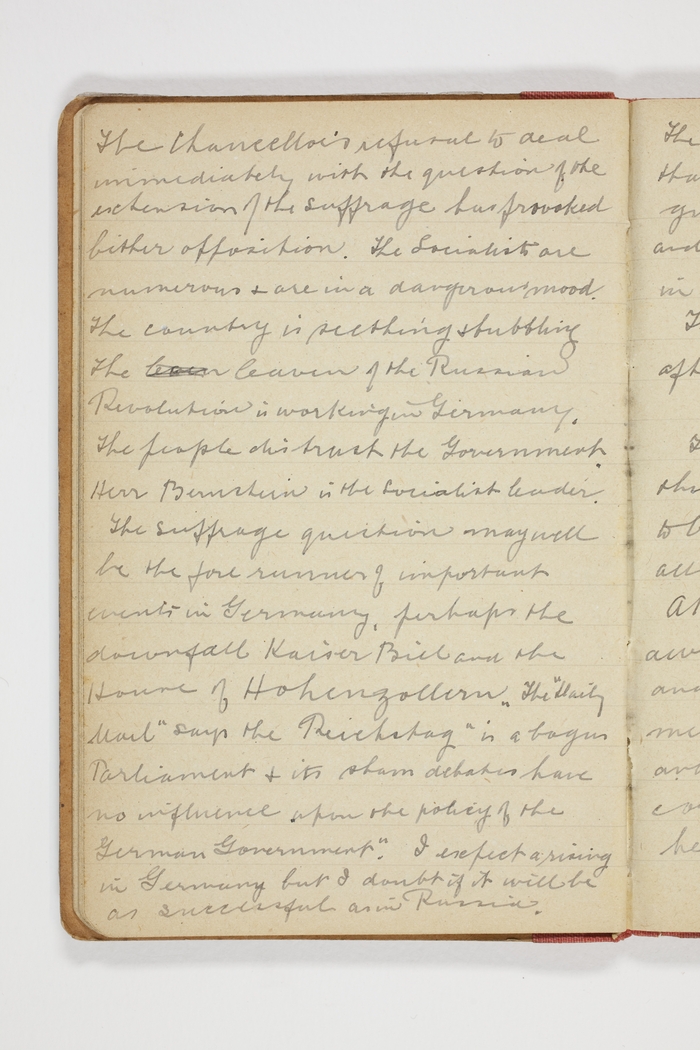 The Chancellor's refusal to deal
immediately with the question of the
extension of the suffrage has provoked
bitter opposition. The Socialists are
numerous & are in a dangerous mood.
The country is seething & bubbling
The leaven of the Russian
Revolution is working in Germany.
The people distrust the Government.
Herr Bernstein is the Socialist leader.
The suffrage question may well
be the fore runner of important
events in Germany, perhaps the
downfall Kaiser Bill and the
House of Hohenzollern. The "Daily
Mail" says the Reichstag "is a bogus
Parliament & its sham debates have
no influence upon the policy of the
German Government". I expect a rising
in Germany but I doubt if it will be
as successful as in Russia.
The
tha
gr
and
in
T
aft
T
thi
to b
all
At
aw
and
me
co
he